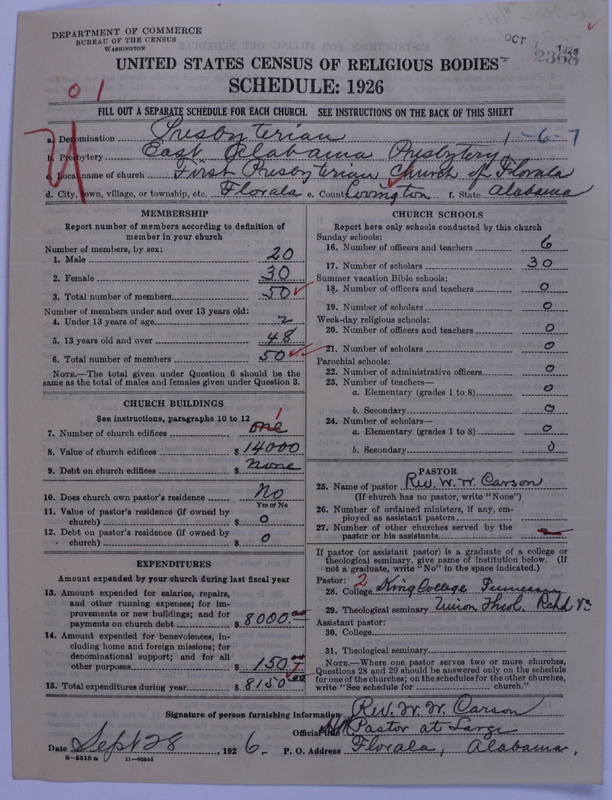 DEPARTMENT OF COMMERCE
BUREAU OF THE CENSUS
WASHINGTON
OCT 1 1926
2368
UNITED STATES CENSUS OF RELIGIOUS BODIES
SCHEDULE: 1926
01
FILL OUT A SEPARATE SCHEDULE FOR EACH CHURCH. SEE INSTRUCTIONS ON THE BACK OF THIS SHEET
a. Denomination Presbyterian 1-6-7
b. Presbytery East Alabama Presbytery
c. Local name of church First Presbyterian Church of Florala
d. City, town, village, or township, etc. Florala e. County Covington f. State Alabama
MEMBERSHIP
Report number of members according to definition of member in your church
Number of members, by sex:
1. Male 20
2. Female 30
3. Total number of members 50
Number of members under and over 13 years old:
4. Under 13 years of age 2
5. 13 years old and over 48
6. Total number of members 50
NOTE.—The total given under Question 6 should be the same as the total of males and females given under Question 3.
CHURCH BUILDINGS
See instructions, paragraphs 10 to 12
7. Number of church edifices one 1
8. Value of church edifices $ 14000
9. Debt on church edifices $ none
10. Does church own pastor's residence No
Yes or No
11. Value of pastor's residence (if owned by church) $ 0
12. Debt on pastor's residence (if owned by church) $ 0
EXPENDITURES
Amount expended by your church during last fiscal year
13. Amount expended for salaries, repairs, and other running expenses; for improvements or new buildings; and for payments on church debt $ 8000.00
14. Amount expended for benevolences, including home and foreign missions; for denominational support; and for all other purposes $ 150 00
15. Total expenditures during year $ 8150 00
CHURCH SCHOOLS
Report here only schools conducted by this church
Sunday schools:
16. Number of officers and teachers 6
17. Number of scholars 30
Summer vacation Bible schools:
18. Number of officers and teachers 0
19. Number of scholars 0
Week-day religious schools:
20. Number of officers and teachers 0
21. Number of scholars 0
Parochial schools:
22. Number of administrative officers 0
23. Number of teachers—
a. Elementary (grades 1 to 8) 0
b. Secondary 0
24. Number of scholars—
a. Elementary (grades 1 to 8) 0
b. Secondary 0
PASTOR
25. Name of pastor Rev. W. W. Carson
(If church has no pastor, write "None")
26. Number of ordained ministers, if any, employed as assistant pastors
27. Number of other churches served by the pastor or his assistants
If pastor (or assistant pastor) is a graduate of a college or theological seminary, give name of institution below. (If not a graduate, write "No" in the space indicated.)
Pastor: 2
28. College King College Tennessee
29. Theological seminary Union Theol. Richd Va
Assistant pastor:
30. College
31. Theological seminary
NOTE.—Where one pastor serves two or more churches, Questions 28 and 29 should be answered only on the schedule for one of the churches; on the schedules for the other churches, write "See schedule for church."
Signature of person furnishing information Rev. W. W. Carson
Official title Pastor at Large
Date Sept 28, 1926. P. O. Address Florala, Alabama,
8-5518 a 11-9034d